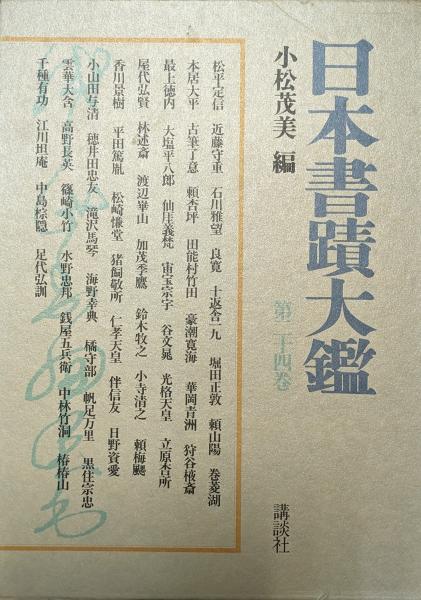 日本書蹟大鑑
第二十四巻
小松茂美 編
講談社
松平定信 近藤守重 石川雅望 良寛 十返舎一九 堀田正敦 頼山陽 巻菱湖
本居大平 古筆了意 頼杏坪 田能村竹田 豪潮寛海 華岡青洲 狩谷棭斎
最上徳内 大塩平八郎 仙厓義梵 宙宝宗宇 谷文晁 光格天皇 立原杏所
屋代弘賢 林述斎 渡辺崋山 加茂季鷹 鈴木牧之 小寺清之 頼梅颸
香川景樹 平田篤胤 松崎慊堂 猪飼敬所 仁孝天皇 伴信友 日野資愛
小山田与清 穂井田忠友 滝沢馬琴 海野幸典 橘守部 帆足万里 黒住宗忠
雲華大含 高野長英 篠崎小竹 水野忠邦 銭屋五兵衛 中林竹洞 椿椿山
千種有功 江川坦庵 中島棕隠 足代弘訓